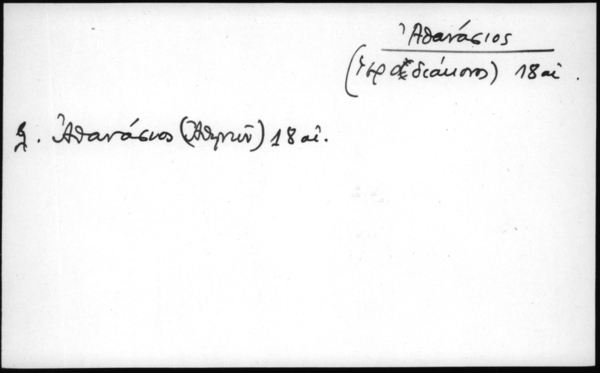 Ἀθανάσιος
(ἱεροδιάκονος) 18 αἰ.
Ἀθανάσιος (Ἀθηνῶν) 18 αἰ.